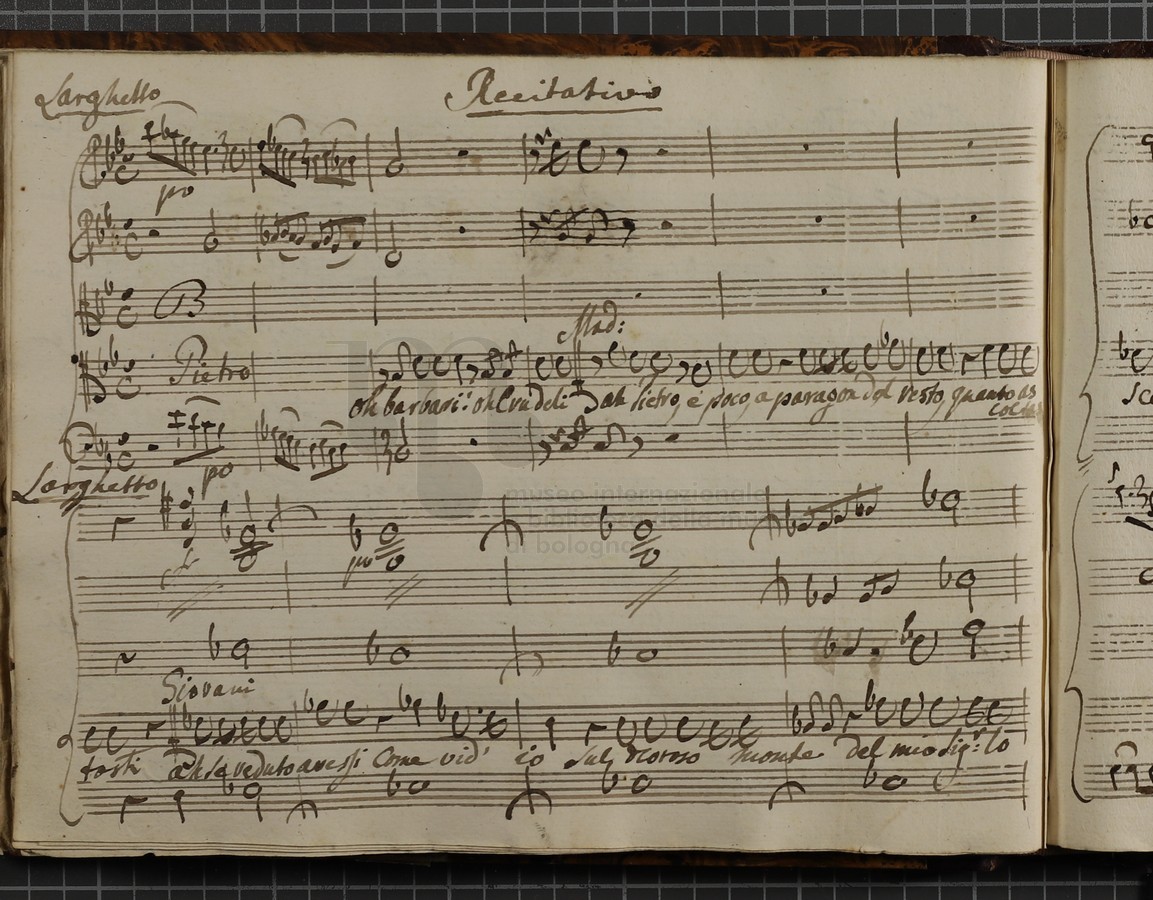 Larghetto Recitativo
po
B
Mad:
Pietro
oh barbari! oh Crudeli ah Pietro, è poco, a paragon del resto, quanto as
coltas
po
Larghetto
museo internazionale
di bologna
po
Giovani
tasti ah se veduto avessi Come vid' io sul doloroso monte del mio Sig.r lo